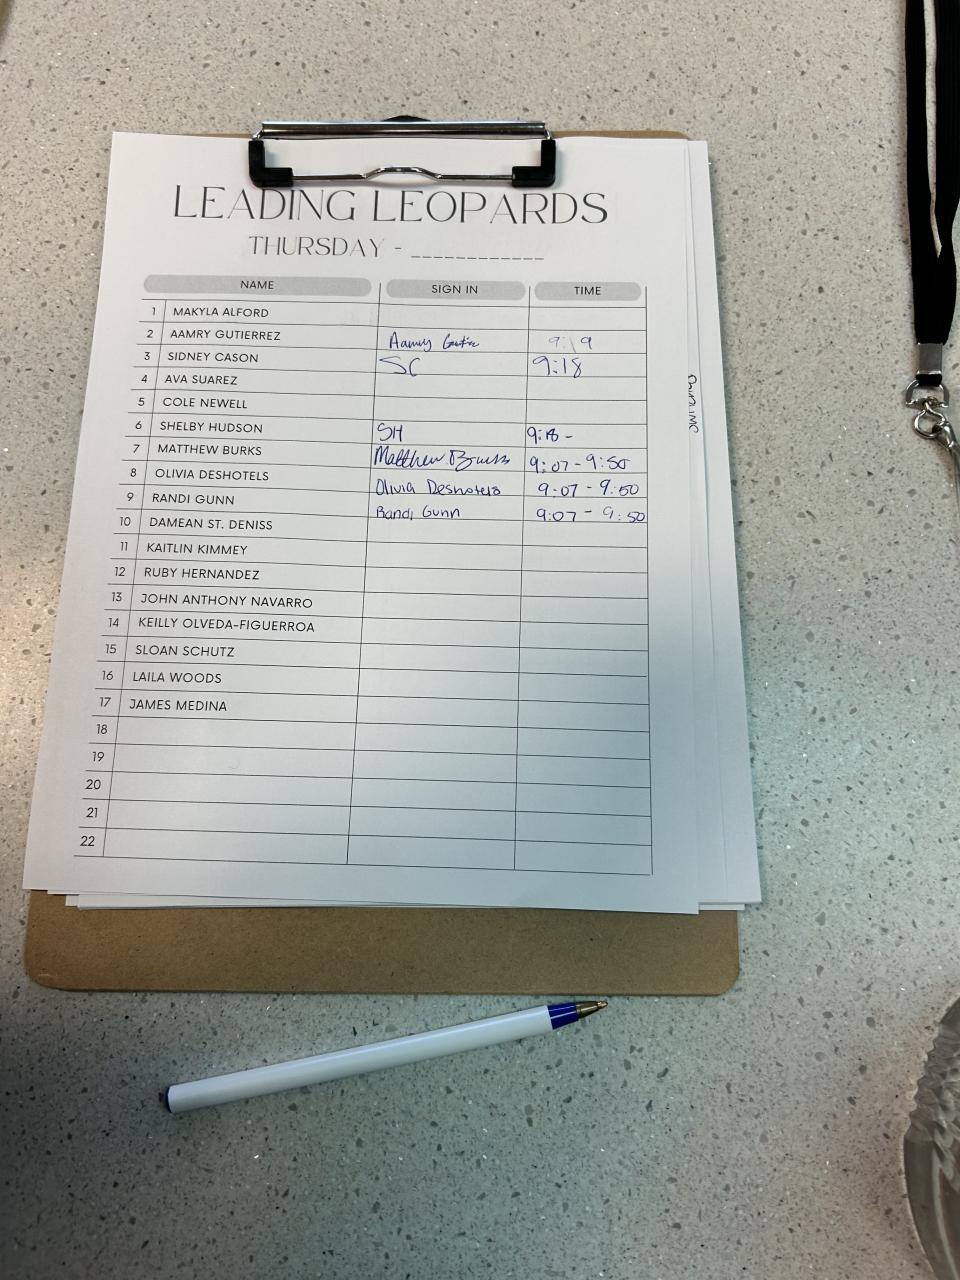 LEADING LEOPARDS
THURSDAY - ____________
NAME SIGN IN TIME
1 MAKYLA ALFORD
2 AAMRY GUTIERREZ Aamry 9:19
3 SIDNEY CASON SC 9:18
4 AVA SUAREZ
5 COLE NEWELL
6 SHELBY HUDSON SH 9:18 -
7 MATTHEW BURKS Matthew Burks 9:07 - 9:50
8 OLIVIA DESHOTELS Olivia Deshotels 9:07 - 9:50
9 RANDI GUNN Randi Gunn 9:07 - 9:50
10 DAMEAN ST. DENISS
11 KAITLIN KIMMEY
12 RUBY HERNANDEZ
13 JOHN ANTHONY NAVARRO
14 KEILLY OLVEDA-FIGUERROA
15 SLOAN SCHUTZ
16 LAILA WOODS
17 JAMES MEDINA
18
19
20
21
22